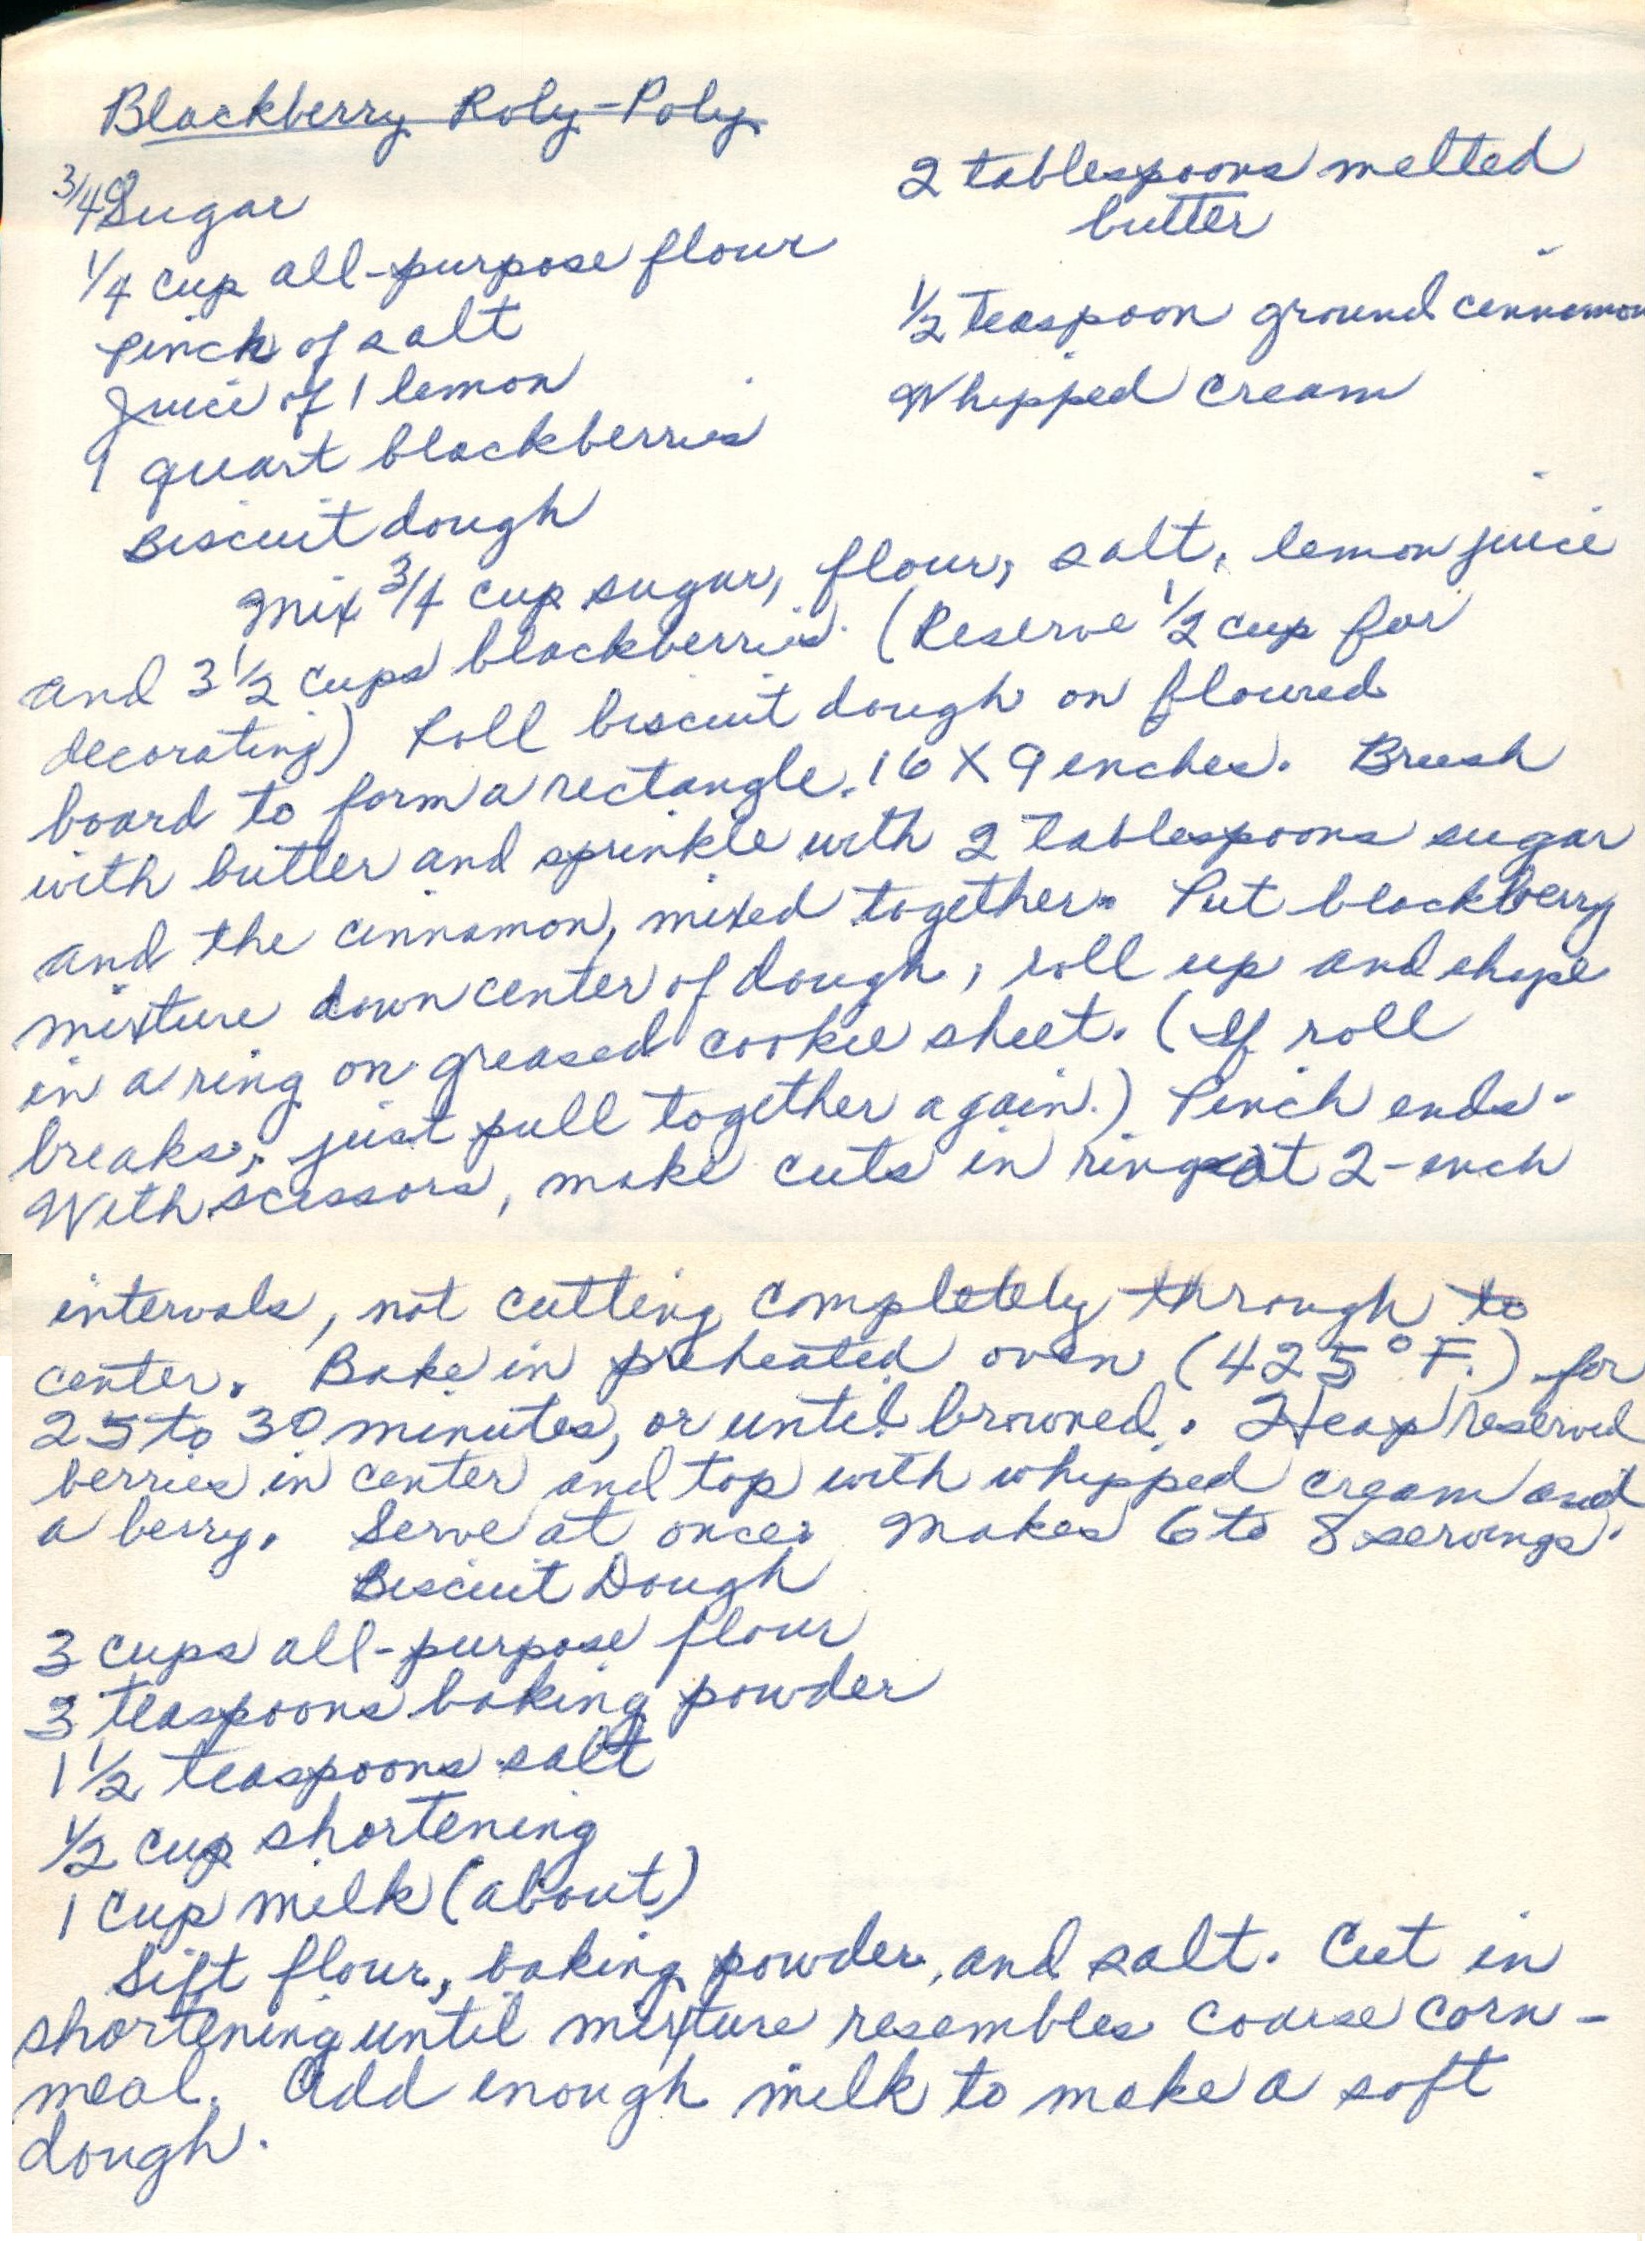 Blackberry Roly-Poly
3/4 c Sugar
1/4 cup all-purpose flour
Pinch of salt
Juice of 1 lemon
1 quart blackberries
Biscuit dough
2 tablespoons melted
butter
1/2 teaspoon ground cinnamon
Whipped cream
Mix 3/4 cup sugar, flour, salt, lemon juice
and 3 1/2 cups blackberries. (Reserve 1/2 cup for
decorating) Roll biscuit dough on floured
board to form a rectangle, 16 X 9 inches. Brush
with butter and sprinkle with 2 tablespoons sugar
and the cinnamon, mixed together. Put blackberry
mixture down center of dough, roll up and shape
in a ring on greased cookie sheet. (If roll
breaks, just pull together again.) Pinch ends.
With scissors, make cuts in ring at 2-inch
intervals, not cutting completely through to
center. Bake in preheated oven (425° F.) for
25 to 30 minutes, or until browned. Heap reserved
berries in center and top with whipped cream and
a berry. Serve at once. Makes 6 to 8 servings.
Biscuit Dough
3 cups all-purpose flour
3 teaspoons baking powder
1 1/2 teaspoons salt
1/2 cup shortening
1 cup milk (about)
Sift flour, baking powder, and salt. Cut in
shortening until mixture resembles coarse corn-
meal. Add enough milk to make a soft
dough.